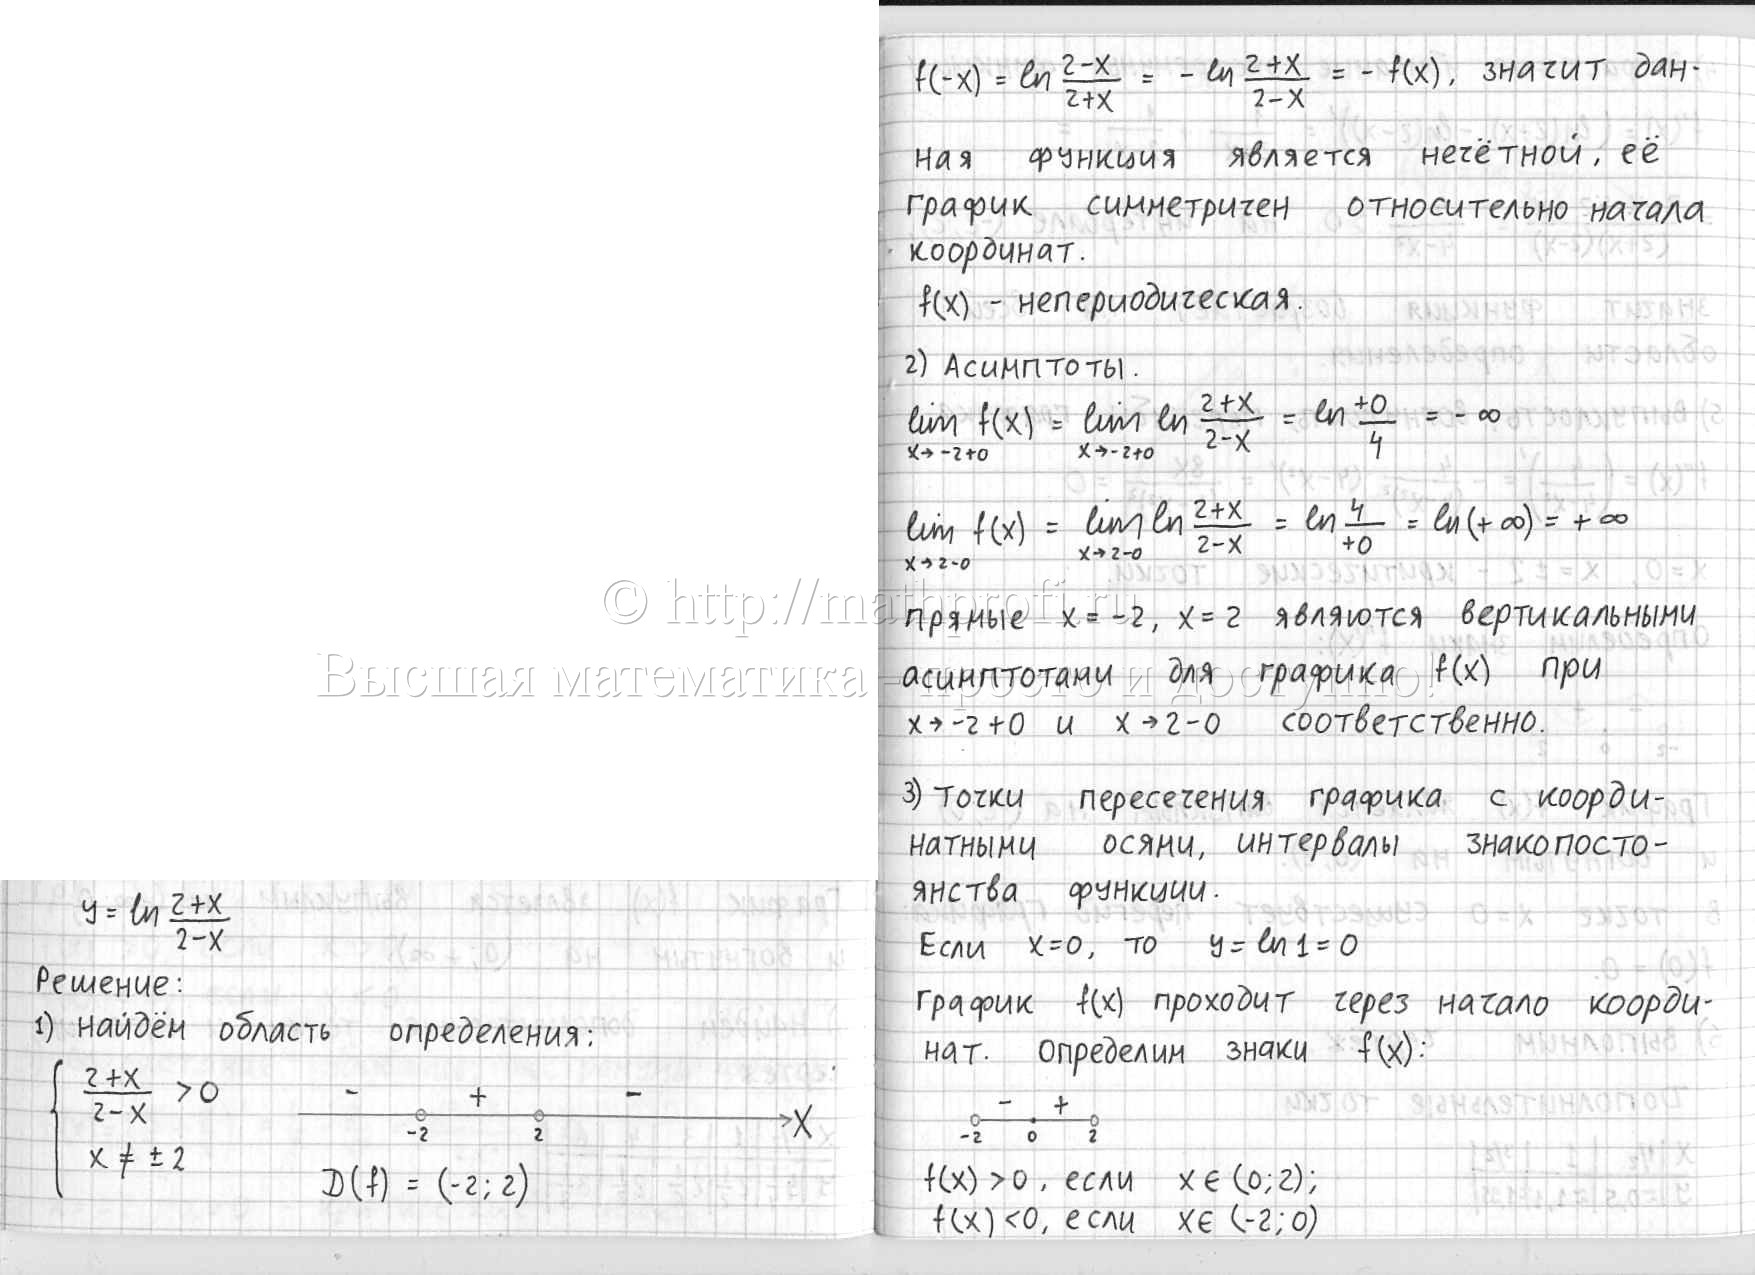 y = ln (2+x)/(2-x)
Решение:
1) Найдём область определения:
{ (2+x)/(2-x) > 0
x ≠ ± 2
- + -
-2 2 X
D(f) = (-2; 2)
f(-x) = ln (2-x)/(2+x) = - ln (2+x)/(2-x) = - f(x), значит дан-
ная функция является нечётной, её
график симметричен относительно начала
координат.
f(x) - непериодическая.
2) Асимптоты.
lim x→-2+0 f(x) = lim x→-2+0 ln (2+x)/(2-x) = ln +0/4 = - ∞
lim x→2-0 f(x) = lim x→2-0 ln (2+x)/(2-x) = ln 4/+0 = ln(+∞) = +∞
© http://mathprofi.ru
Прямые x = -2, x = 2 являются вертикальными
Высшая математика – просто и доступно!
асимптотами для графика f(x) при
x→-2+0 и x→2-0 соответственно.
3) Точки пересечения графика с коорди-
натными осями, интервалы знакопосто-
янства функции.
Если x=0, то y = ln 1 = 0
График f(x) проходит через начало коорди-
нат. Определим знаки f(x):
- +
-2 0 2
f(x) > 0, если x ∈ (0; 2);
f(x) < 0, если x ∈ (-2; 0)